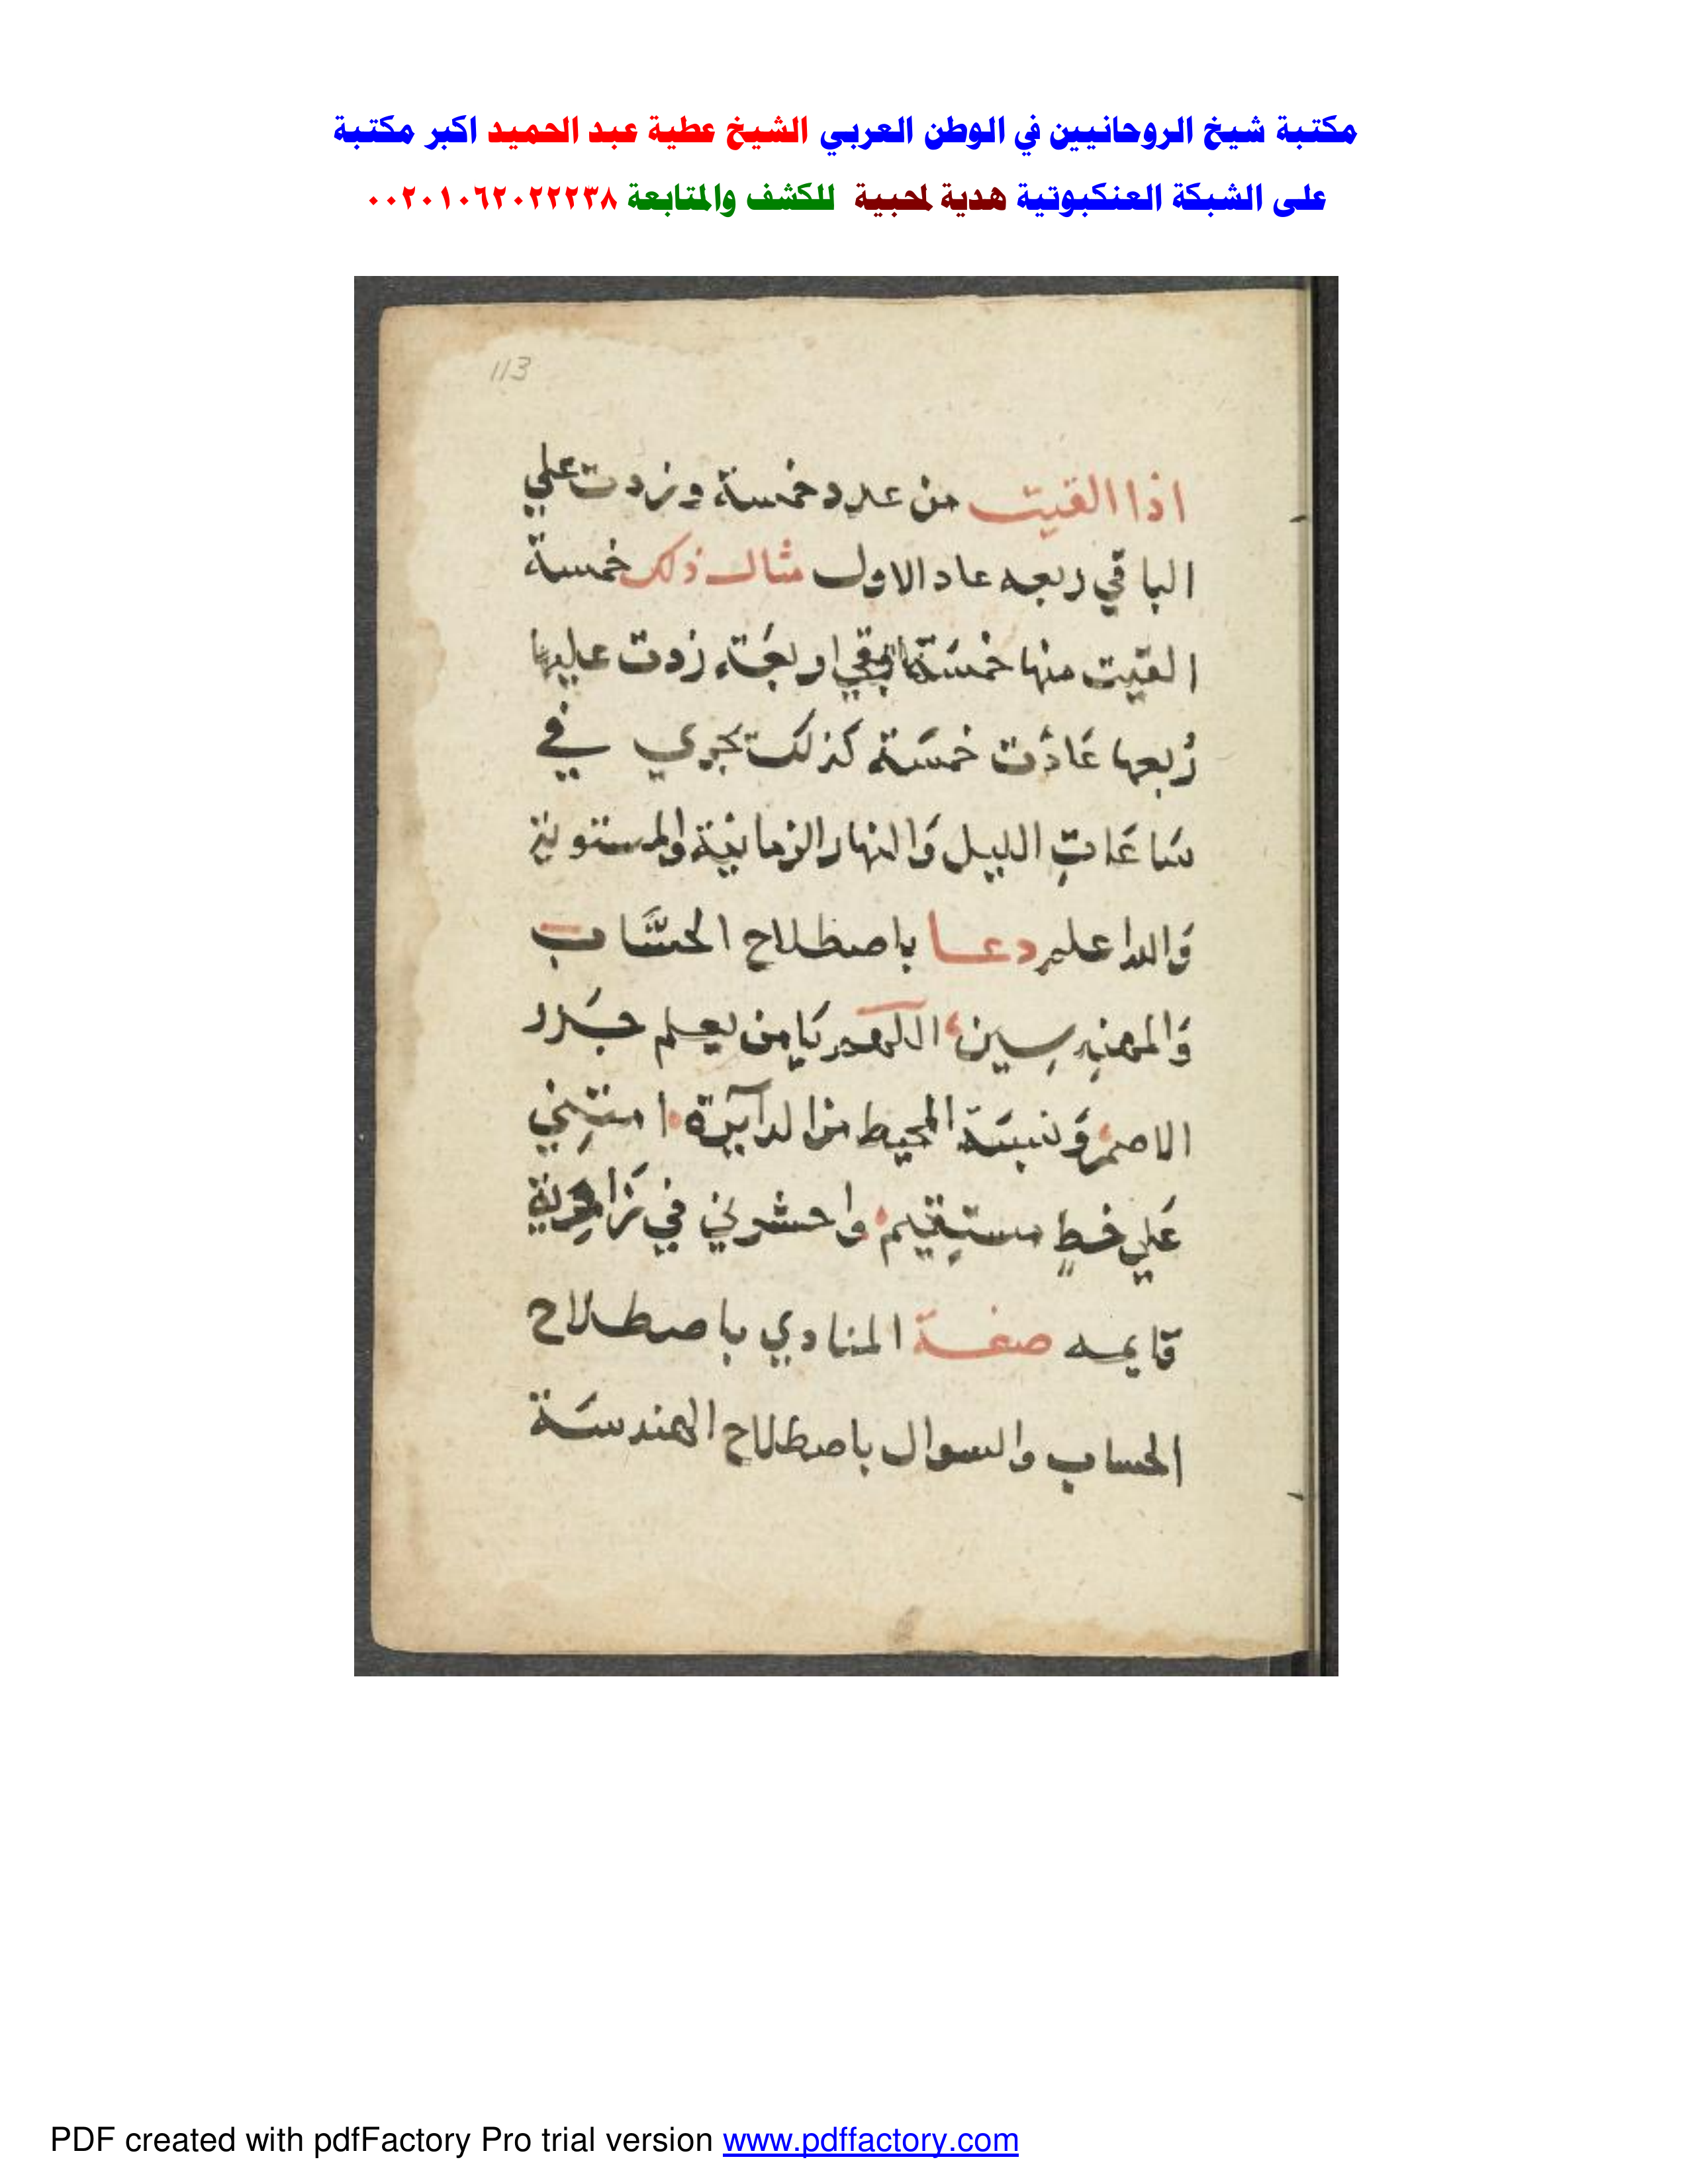 مكتبة شيخ الروحانيين في الوطن العربي الشيخ عطية عبد الحميد اكبر مكتبة
على الشبكة العنكبوتية هدية لمحبية للكشف والمتابعة ٠٠٢٠١٠٦٢٠٢٢٢٣٨
113
اذا القيت من عدد خمسة وزدت علي
الباقي ربعه عاد الاول مثال ذلك خمسة
القيت منها خمسَة اربعَة زدت عليها
رُبعها عَادَت خمسَة كذلك تجري في
سَاعَاتِ الليل وَالنهار الزمانية والمستوية
وَالله اعلم دعا باصطلاح الحسَّاب
وَالمهندِسِين اللهم يَا من يعلم جَدر
الاصم وَنسبَة المحيط من الدآيرة امتِني
عَلي خطٍ مستقِيم واحشرني في زَاوية
قايمه صفة المنادي باصطلاح
الحساب والسوال باصطلاح الهندسَة
PDF created with pdfFactory Pro trial version www.pdffactory.com